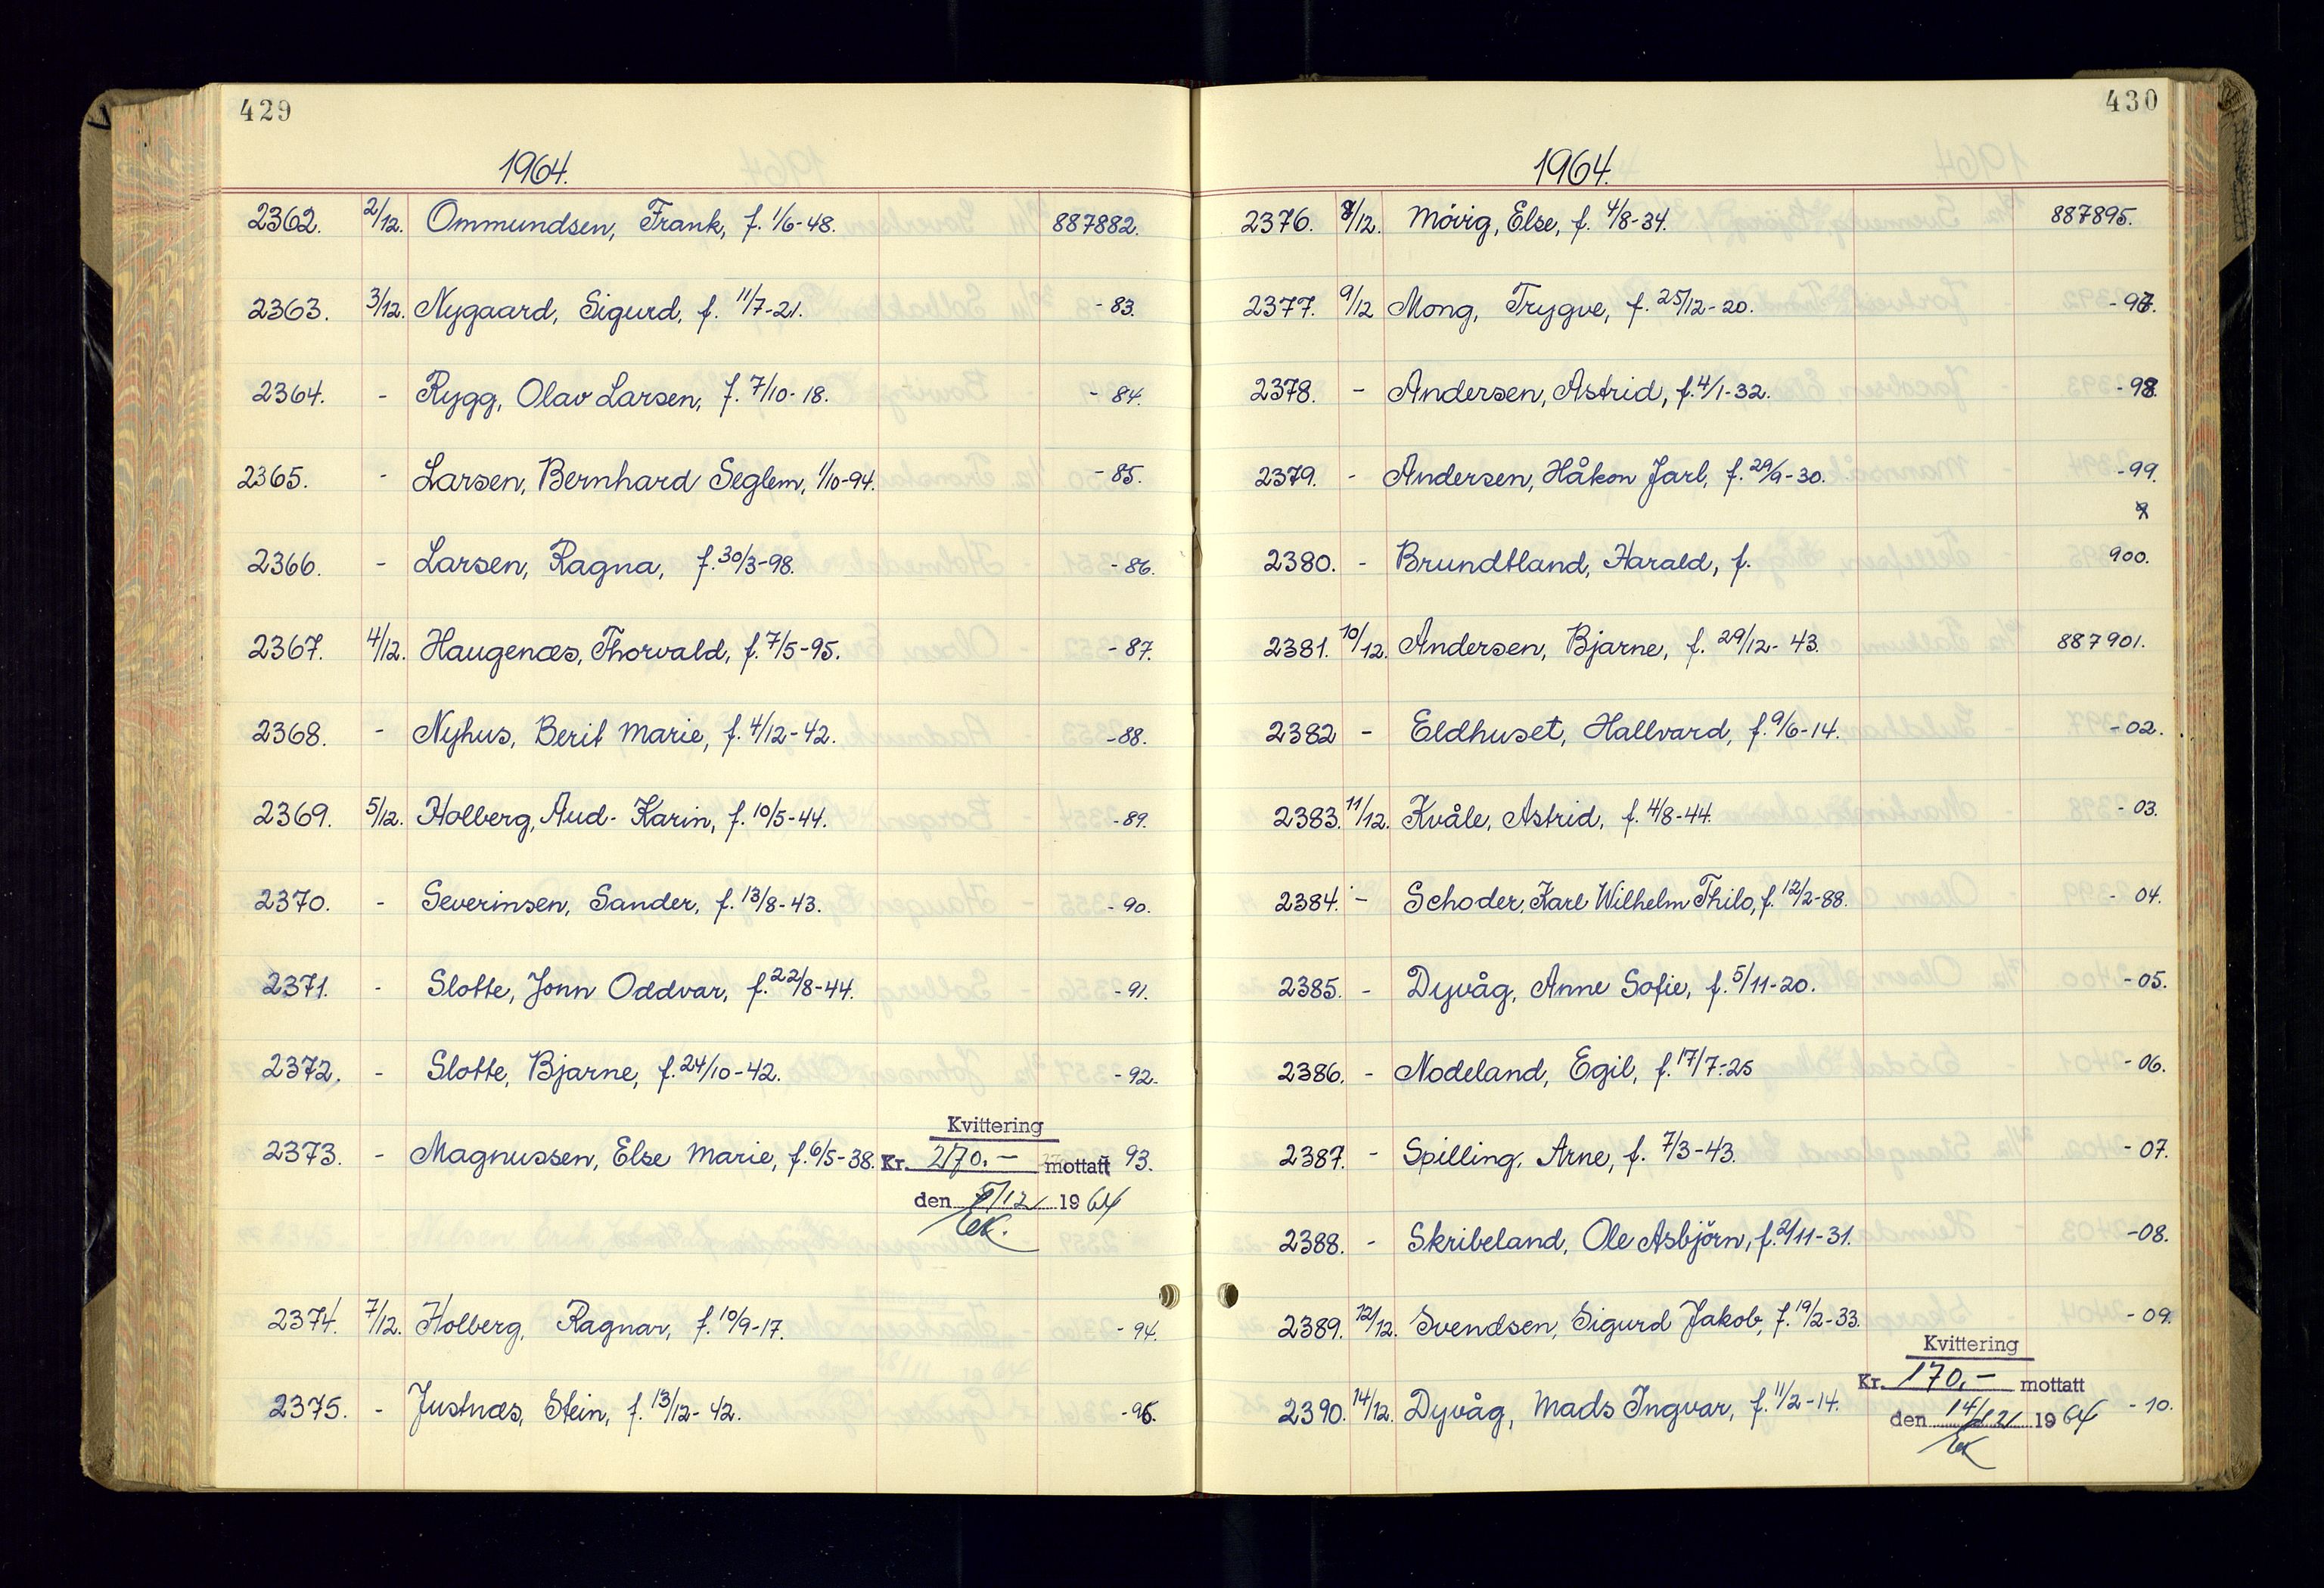 429
1964.
2362. 2/12. Ommundsen, Frank, f. 1/6-48. 887882.
2363. 3/12. Nygaard, Sigurd, f. 11/7-21. -83.
2364. - Rygg, Olav Larsen, f. 7/10-18. -84.
2365. - Larsen, Bernhard Seglem, 1/10-94. -85.
2366. - Larsen, Ragna, f. 30/3-98. -86.
2367. 4/12. Haugenæs, Thorvald, f. 7/5-95. -87.
2368. - Nyhus, Berit Marie, f. 4/12-42. -88.
2369. 5/12. Holberg, Aud-Karin, f. 10/5-44. -89.
2370. - Severinsen, Sander, f. 13/8-43. -90.
2371. - Slotte, Jonn Oddvar, f. 22/8-44. -91.
2372. - Slotte, Bjarne, f. 24/10-42. -92.
Kvittering
2373. - Magnussen, Else Marie, f. 6/5-38. Kr. 270.- mottatt 93.
den 5/12 1964
EK.
2374. 7/12. Holberg, Ragnar, f. 10/9-17. -94.
2375. - Justnæs, Stein, f. 13/12-42. -96.
430
1964.
2376. 8/12. Mövig, Else, f. 4/8-34. 887895.
2377. 9/12 Mong, Trygve, f. 25/12-20. -97.
2378. - Andersen, Astrid, f. 4/1-32. -98.
2379. - Andersen, Håkon Jarl, f. 29/9-30. -99.
2380. - Brundtland, Harald, f. 900.
2381. 10/12. Andersen, Bjarne, f. 29/12-43. 887901.
2382 - Eldhuset, Hallvard, f. 9/6-14. -02.
2383. 11/12. Kvåle, Astrid, f. 4/8-44. -03.
2384. - Schoder, Karl Wilhelm Thilo, f. 12/2-88. - 04.
2385. - Dyvåg, Anne Sofie, f. 5/11-20. -05.
2386. - Nodeland, Egil, f. 17/7-25 -06.
2387. - Spilling, Arne, f. 7/3-43. -07.
2388. - Skribeland, Ole Asbjörn, f. 2/11-31. -08.
2389. 12/12. Svendsen, Sigurd Jakob, f. 19/2-33. -09.
Kvittering
Kr. 170.- mottatt
2390. 14/12. Dyvåg, Mads Ingvar, f. 11/2-14. -10.
den 14/12 1964
EK